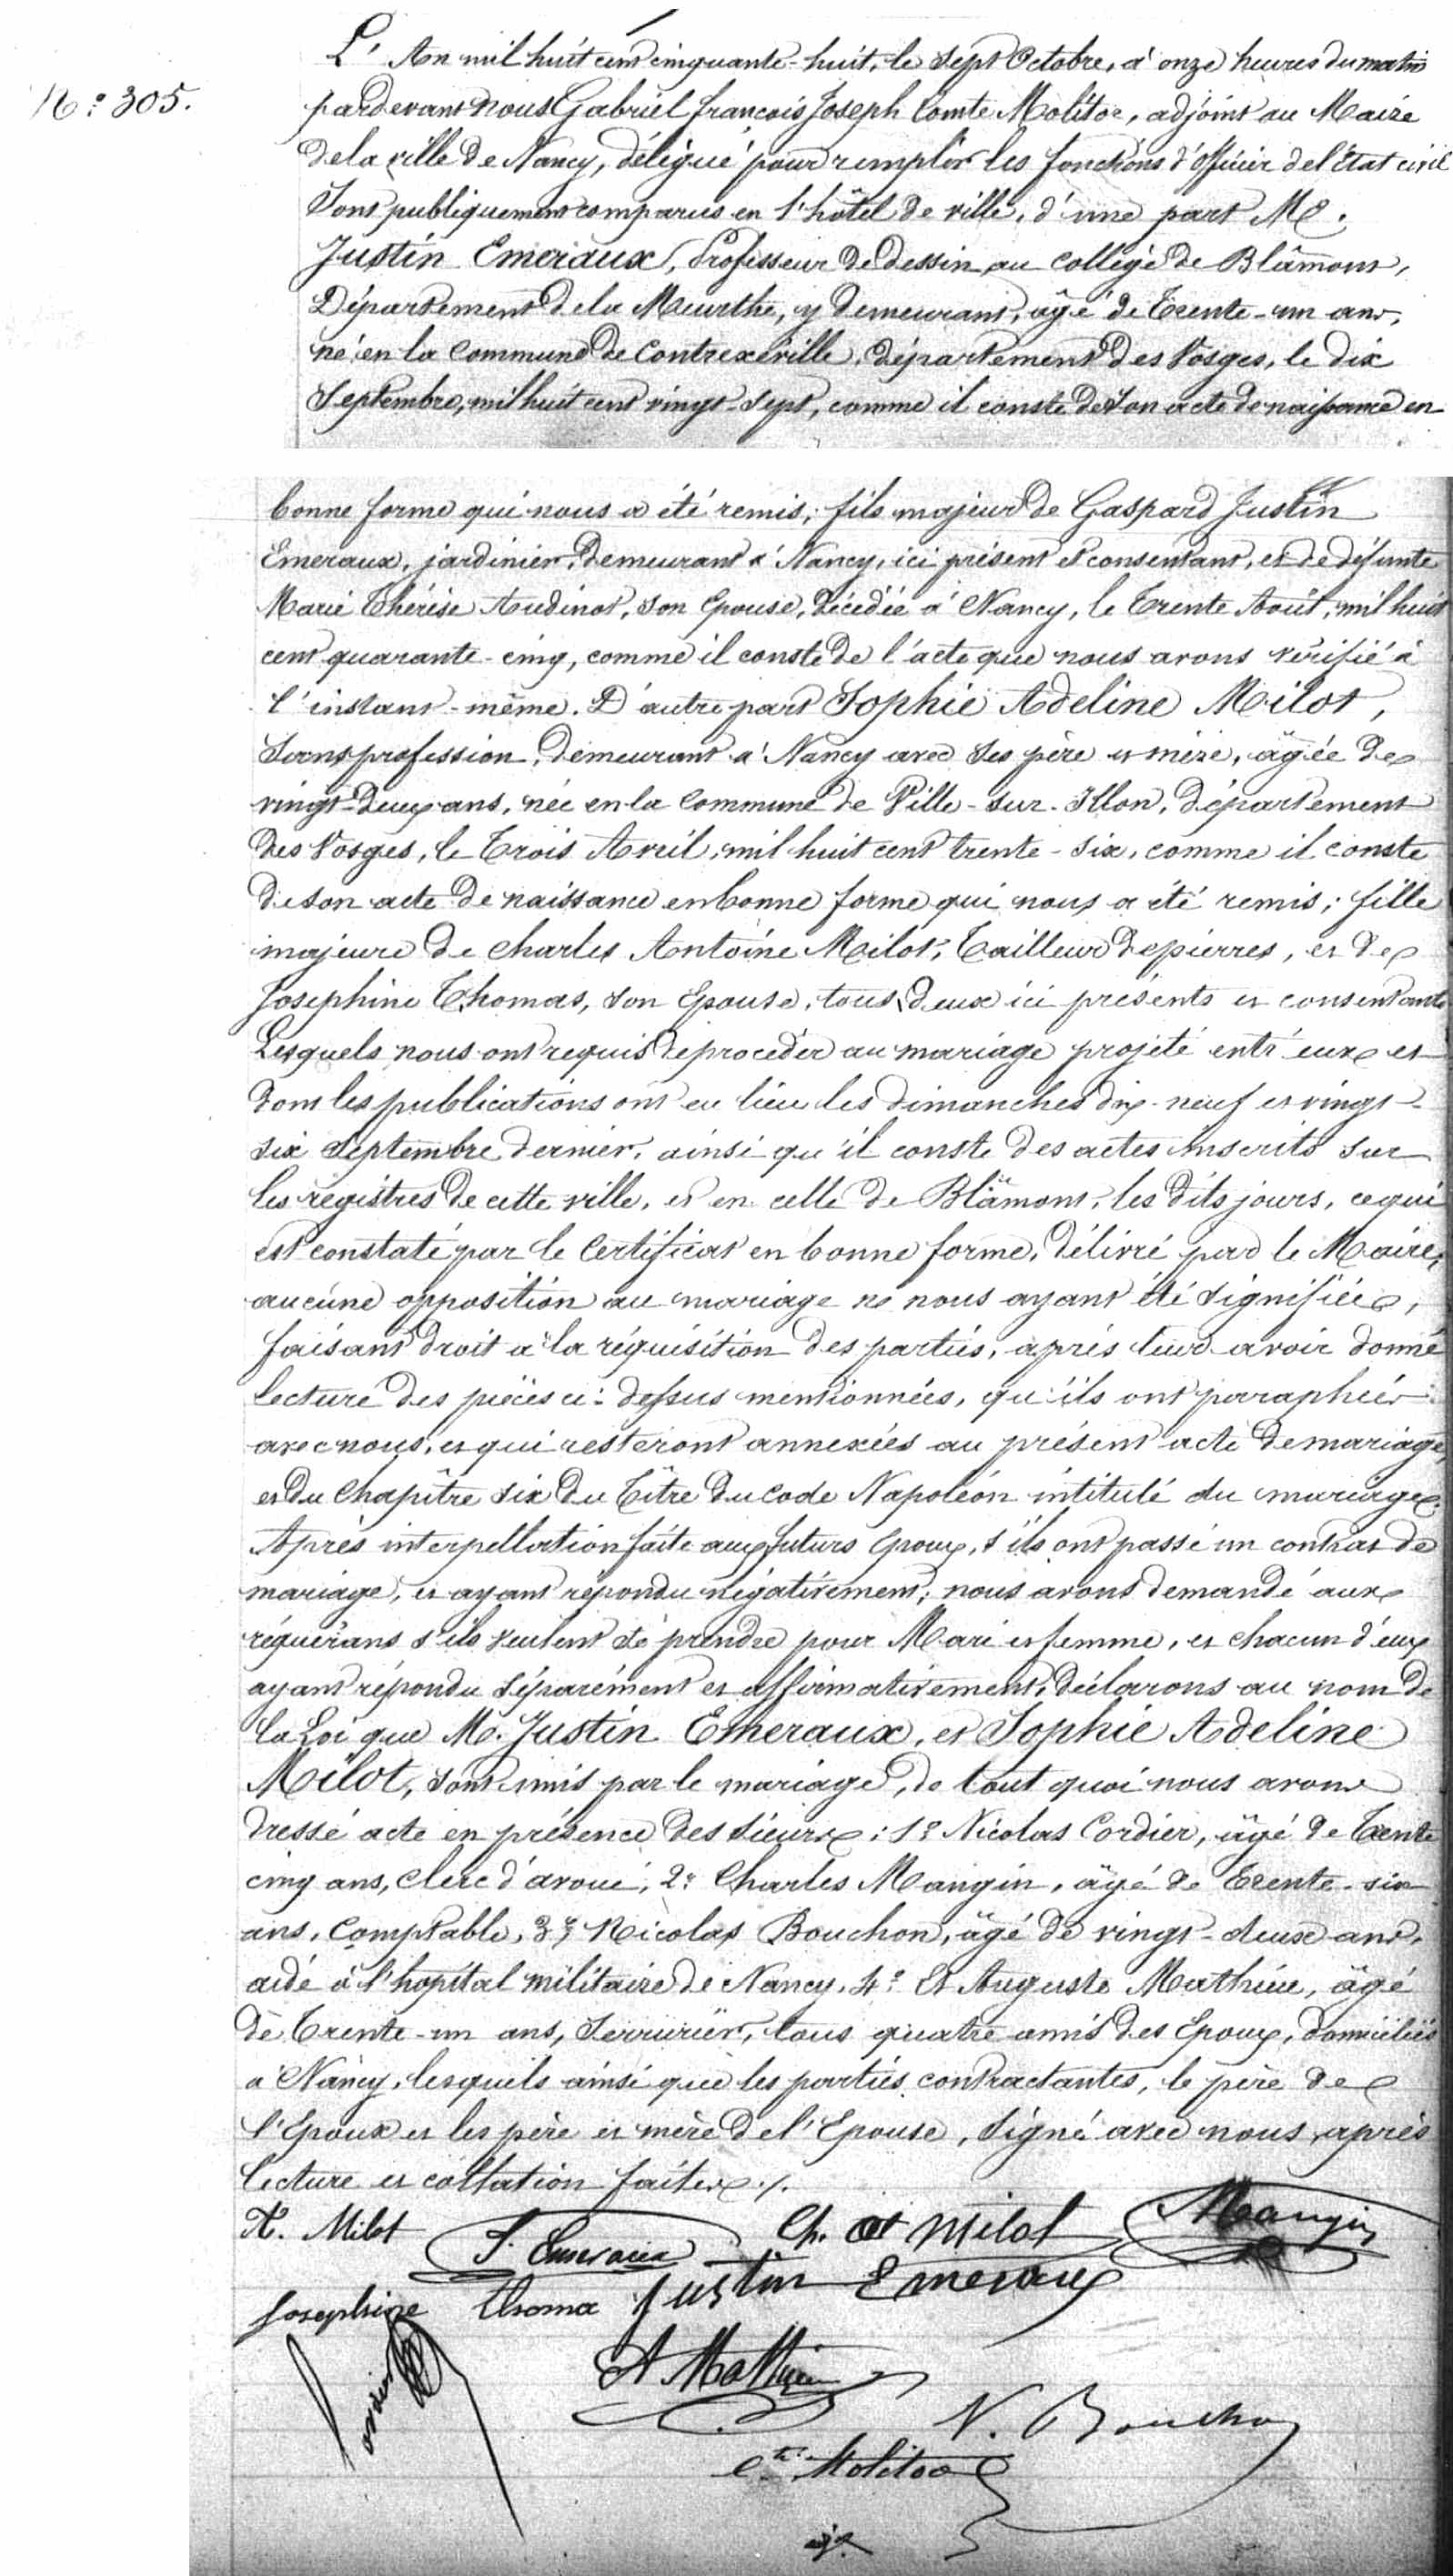 L'An mil huit cent cinquante-huit, le sept Octobre, à onze heures du matin
N.° 305.
pardevant nous Gabriel françois Joseph Comte Molitor, adjoint au Maire
de la ville de Nancy, délégué pour remplir les fonctions d'officier de l'État civil
Sont publiquement comparus en l'hôtel de ville, d'une part M.
Justin Emeraux, Professeur de dessin au collége de Blâmont,
Département de la Meurthe, y demeurant, âgé de Trente-un ans,
né en la commune de Contrexéville, département des Vosges, le dix
Septembre, mil huit cent vingt-sept, comme il conste de son acte de naissance en
bonne forme qui nous a été remis; fils majeur de Gaspard Justin
Emeraux, jardinier, demeurant à Nancy, ici présent et consentant, et de défunte
Marie Thérèse Audinot, son Epouse, décédée à Nancy, le Trente Août, mil huit
cent quarante-cinq, comme il conste de l'acte que nous avons vérifié à
l'instant-même. D'autre part Sophie Adeline Milot,
Sans profession, demeurant à Nancy avec ses père et mère, âgée de
vingt-deux ans, née en la commune de Ville-sur-Illon, département
des Vosges, le Trois Avril, mil huit cent trente-six, comme il conste
de son acte de naissance en bonne forme qui nous a été remis; fille
majeure de Charles Antoine Milot, Tailleur de pierres, et de
Josephine Thomas, son Epouse, tous deux ici présents et consentants
Lesquels nous ont requis de procéder au mariage projeté entr'eux et
dont les publications ont eu lieu les dimanches dix-neuf et vingt-
six Septembre dernier, ainsi qu'il conste des actes inscrits sur
les registres de cette ville, et en celle de Blâmont, les dits jours, ce qui
est constaté par le Certificat en bonne forme, délivré par le Maire,
aucune opposition au mariage ne nous ayant été signifiée,
faisant droit à la réquisition des parties, après leur avoir donné
lecture des pièces ci-dessus mentionnées, qu'ils ont paraphées
avec nous, et qui resteront annexées au présent acte de mariage,
et du Chapître six du Tître du code Napoléon intitulé du mariage.
Après interpellation faite aux futurs Epoux, s'ils ont passé un contrat de
mariage, et ayant répondu négativement, nous avons demandé aux
réquérans s'ils veulent se prendre pour Mari et femme, et chacun d'eux
ayant répondu séparément et affirmativement, déclarons au nom de
la Loi que M. Justin Emeraux, et Sophie Adeline
Milot, sont unis par le mariage, de tout quoi nous avons
dressé acte en présence des sieurs: 1° Nicolas Cordier, âgé de Trente
cinq ans, clerc d'avoué, 2° Charles Mangin, âgé de Trente-six
ans, Comptable, 3° Nicolas Bouchon, âgé de vingt-deux ans,
aidé à l'hopital militaire de Nancy, 4° Et Auguste Mathieu, âgé
de Trente-un ans, Serrurier, tous quatre amis des Epoux, domiciliés
à Nancy, lesquels ainsi que les parties contractantes, le père de
l'Epoux et les père et mère de l'Epouse, signé avec nous après
lecture et collation faites ./.
A. Milot J. Emeraux Ch. at Milot Mangin
Josephine thoma Justin Emeraux
Cordier A Mathieu
N. Bouchon
Cte Molitor
adj.